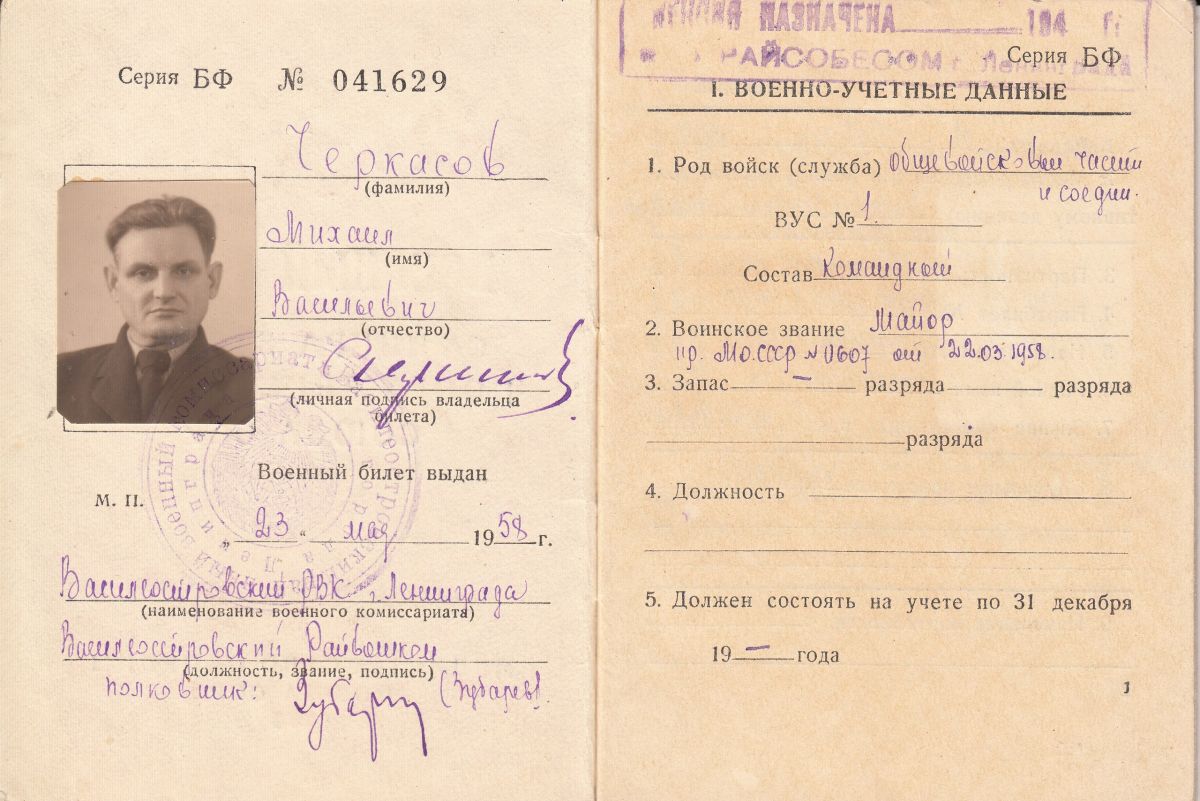 Серия БФ № 041629
Черкасов
(фамилия)
Михаил
(имя)
Васильевич
(отчество)
(личная подпись владельца
билета)
Военный билет выдан
М. П.
„ 23 “ мая 1958 г.
Василеостровский РВК г. Ленинграда
(наименование военного комиссариата)
Василеостровский Райвоенком
(должность, звание, подпись)
полковник: (Зубарев)
НАЗНАЧЕНА 194 г.
РАЙСОБЕСОМ г. Ленинграда
Серия БФ
I. ВОЕННО-УЧЕТНЫЕ ДАННЫЕ
1. Род войск (служба) общевойсковых частей
и соедин.
ВУС № 1.
Состав Командный
2. Воинское звание Майор
пр. МО.СССР №0607 от 22.03.1958.
3. Запас — разряда разряда
разряда
4. Должность
5. Должен состоять на учете по 31 декабря
19 — года
1